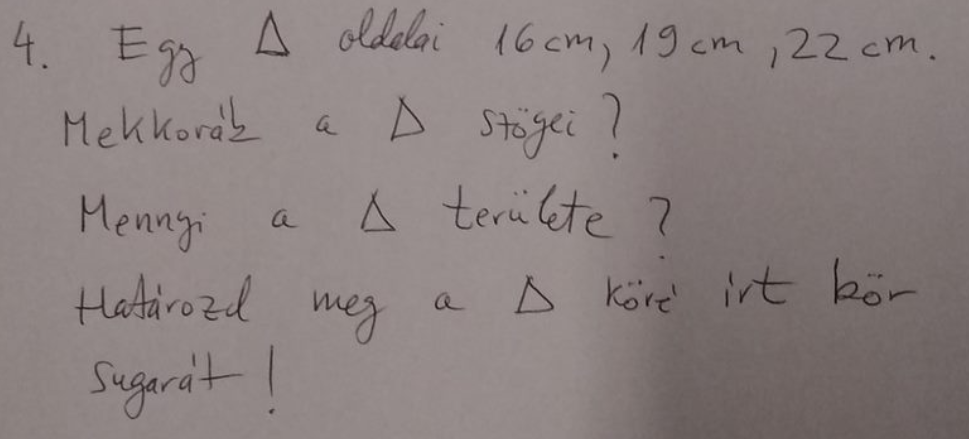 4. Egy Δ oldalai 16 cm, 19 cm, 22 cm.
Mekkorák a Δ szögei?
Mennyi a Δ területe?
Határozd meg a Δ köré írt kör
sugarát!